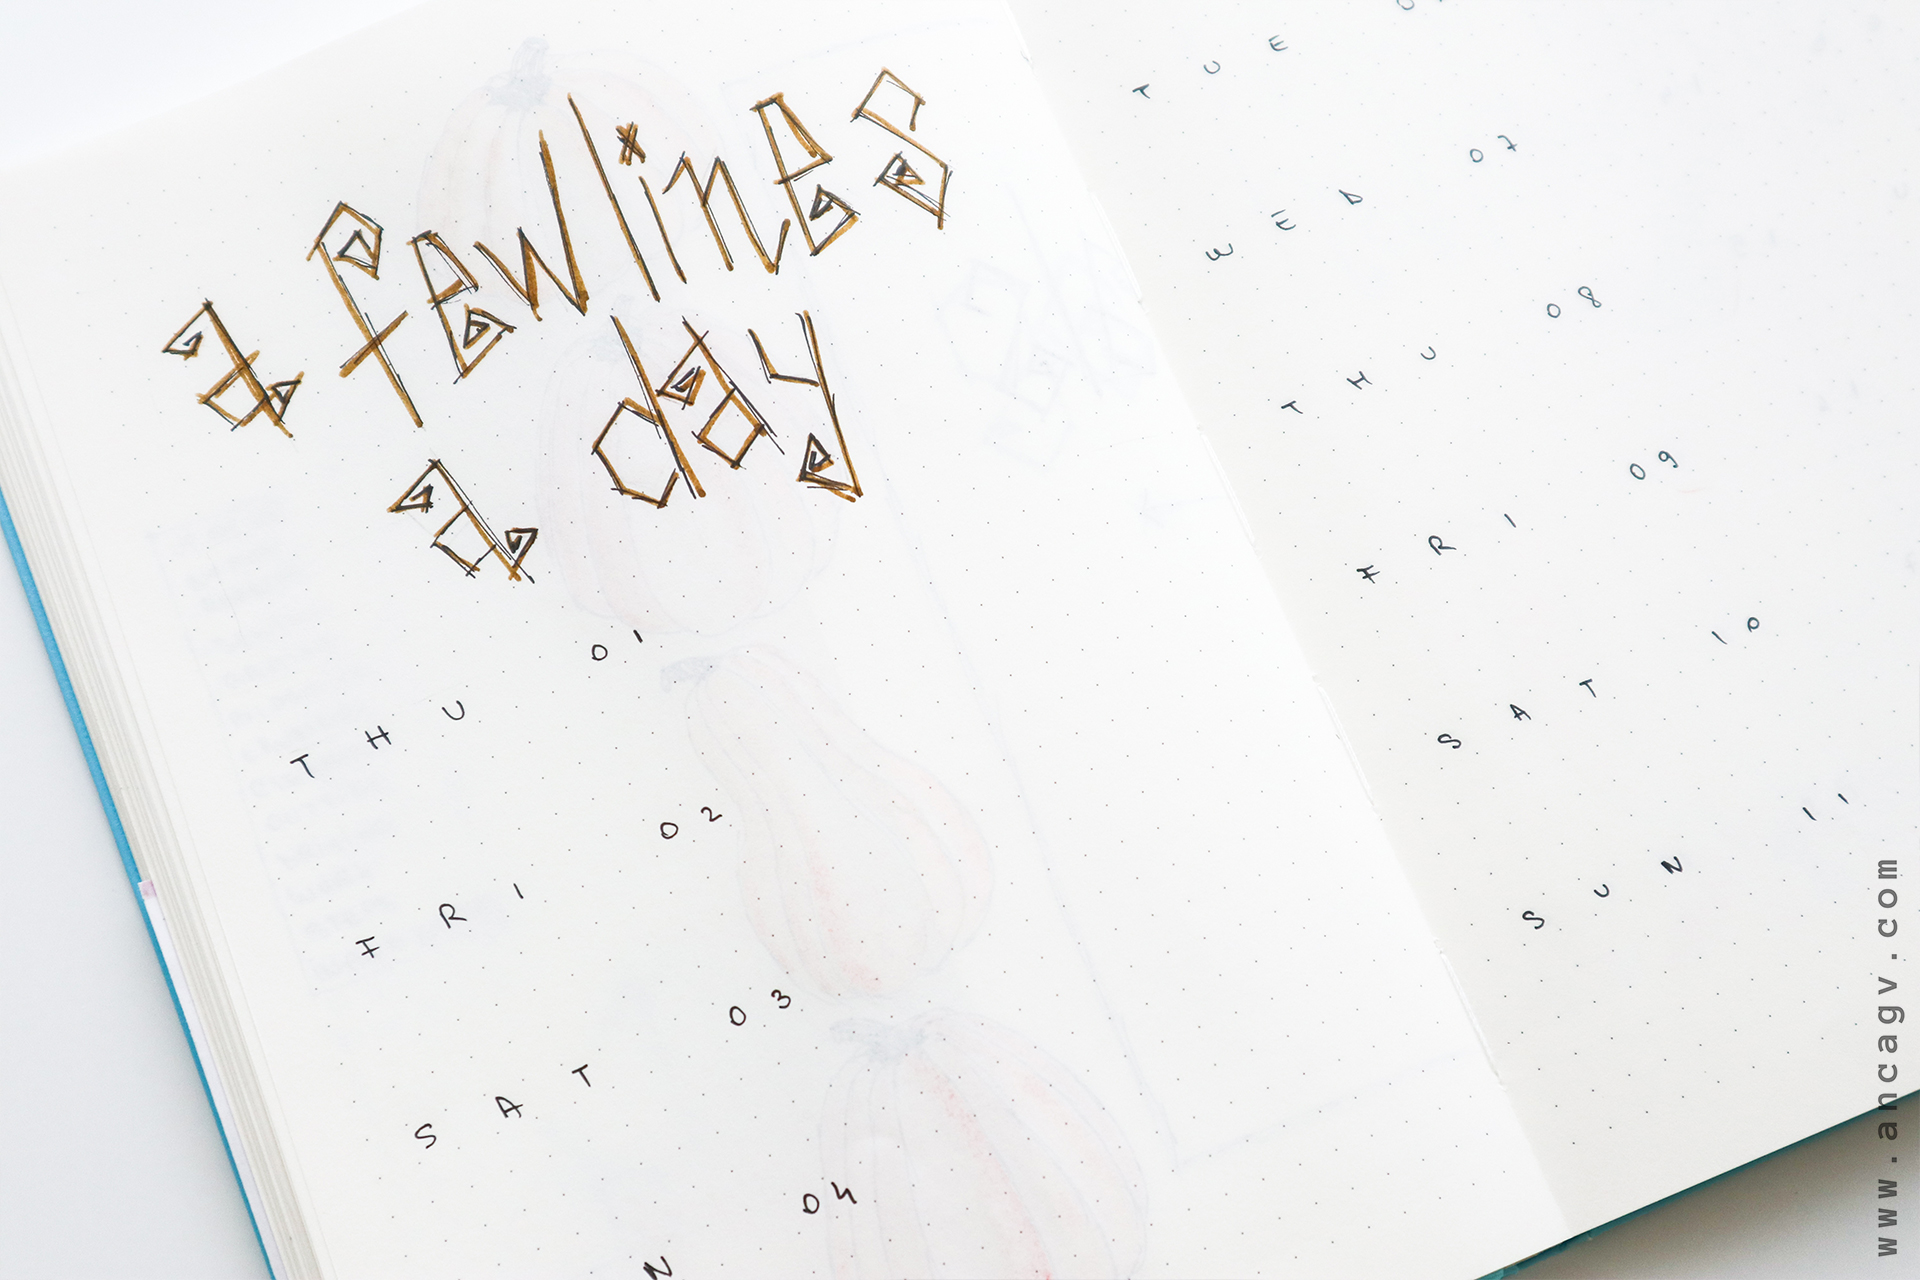 a few lines
a day
THU 01
FRI 02
SAT 03
04
TUE
WED 07
THU 08
FRI 09
SAT 10
SUN 11
www.ancagv.com